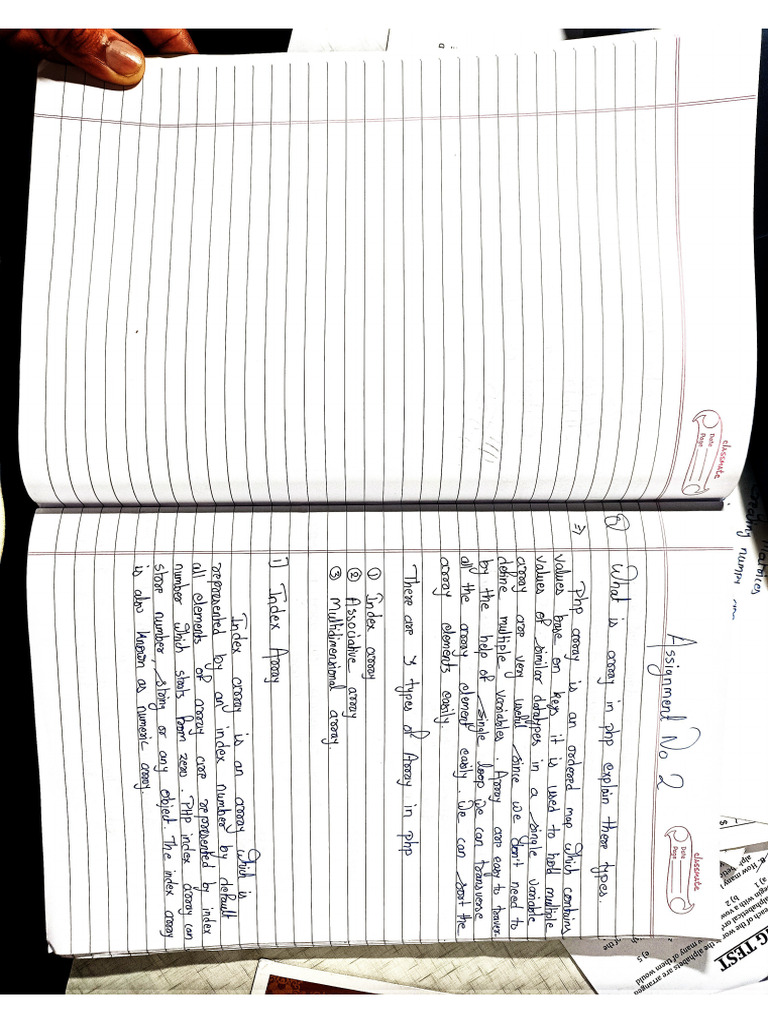 Assignment No 2
classmate
Date
Page
Q What is array in php explain there types.
⇒ Php array is an ordered map which contains
values base on keys it is used to hold multiple
values of similar datatypes in a single variable
array are very useful since we don't need to
define multiple variables. Array are easy to traver
by the help of single loop we can transverse
all the array element easily. We can sort the
array elements easily.
There are 3 types of Array in php
① Index array
② Associative array
③ Multidimensional array.
1) Index Array
Index array is an array which is
represented by an index number by default
all elements of array are represented by index
number which starts from zero. PHP index array can
store number, string or any object. The index array
is also known as numeric array.
classmate
Date
Page
NG TEST